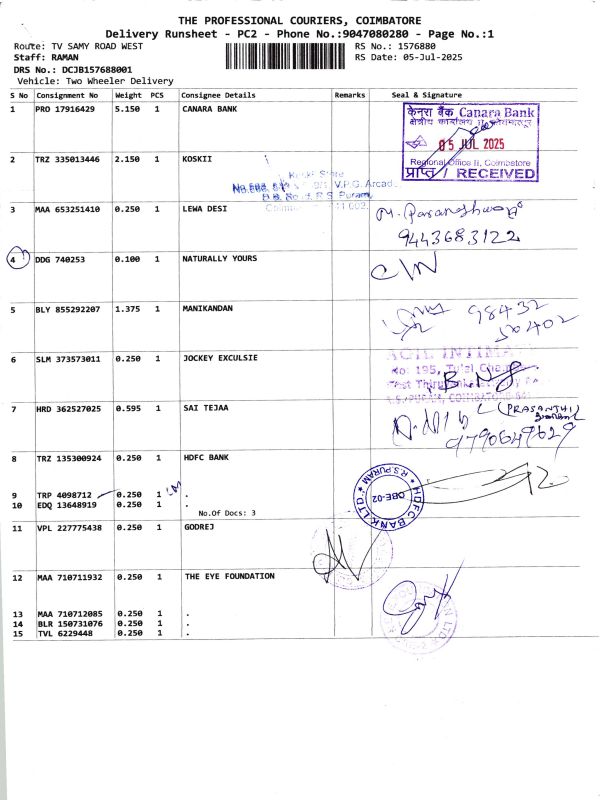 THE PROFESSIONAL COURIERS, COIMBATORE
Delivery Runsheet - PC2 - Phone No.:9047080280 - Page No.:1
Route: TV SAMY ROAD WEST
RS No.: 1576880
Staff: RAMAN
RS Date: 05-Jul-2025
DRS No.: DCJB157688001
Vehicle: Two Wheeler Delivery
S No Consignment No Weight PCS Consignee Details Remarks Seal & Signature
1 PRO 17916429 5.150 1 CANARA BANK
केनरा बैंक Canara Bank
05 JUL 2025
Regional Office II, Coimbatore
प्राप्ति / RECEIVED
2 TRZ 335013446 2.150 1 KOSKII
V.P.G. Arcad
R.S Puram
3 MAA 653251410 0.250 1 LEWA DESI
9443683122
4 DDG 740253 0.100 1 NATURALLY YOURS
5 BLY 855292207 1.375 1 MANIKANDAN
98432
50402
6 SLM 373573011 0.250 1 JOCKEY EXCULSIE
No: 195,
7 HRD 362527025 0.595 1 SAI TEJAA
(PRASANTHI)
9790649629
8 TRZ 135300924 0.250 1 HDFC BANK
HDFC BANK LTD ★ R.S.PURAM ★
OBE-02
9 TRP 4098712 0.250 1 .
10 EDQ 13648919 0.250 1 .
No.Of Docs: 3
11 VPL 227775438 0.250 1 GODREJ
12 MAA 710711932 0.250 1 THE EYE FOUNDATION
13 MAA 710712085 0.250 1 .
14 BLR 150731076 0.250 1 .
15 TVL 6229448 0.250 1 .